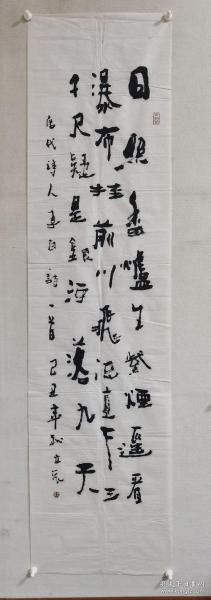 日照香爐生紫煙遥看
瀑布挂前川飛流直下三
千尺疑是銀河落九天
唐代詩人李白詩一首己丑年秋